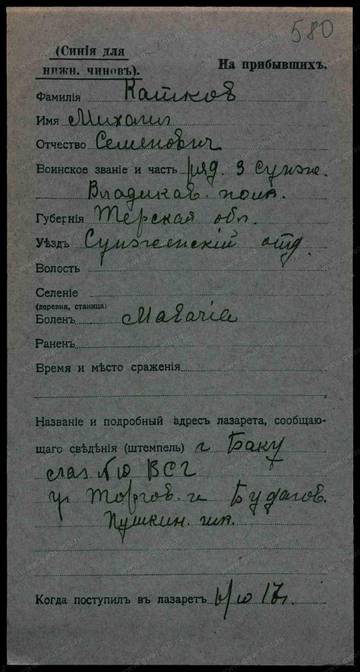 580
(Синія для
нижн. чиновъ).
На прибывшихъ.
Фамилія Катков
Имя Михаил
Отчество Семенович
Воинское званіе и часть ряд. 3 Сунж.
Владикав. полк.
Губернія Терская обл.
Уѣздъ Сунженскій отд.
Волость
Селеніе
(деревня, станица)
Боленъ Малярія
Раненъ
Время и мѣсто сраженія
Названіе и подробный адресъ лазарета, сообщаю-
щаго свѣдѣнія (штемпель) г Баку
ВСГ
уг Торгов. и Будагов.
Пушкин.
Когда поступилъ въ лазаретъ